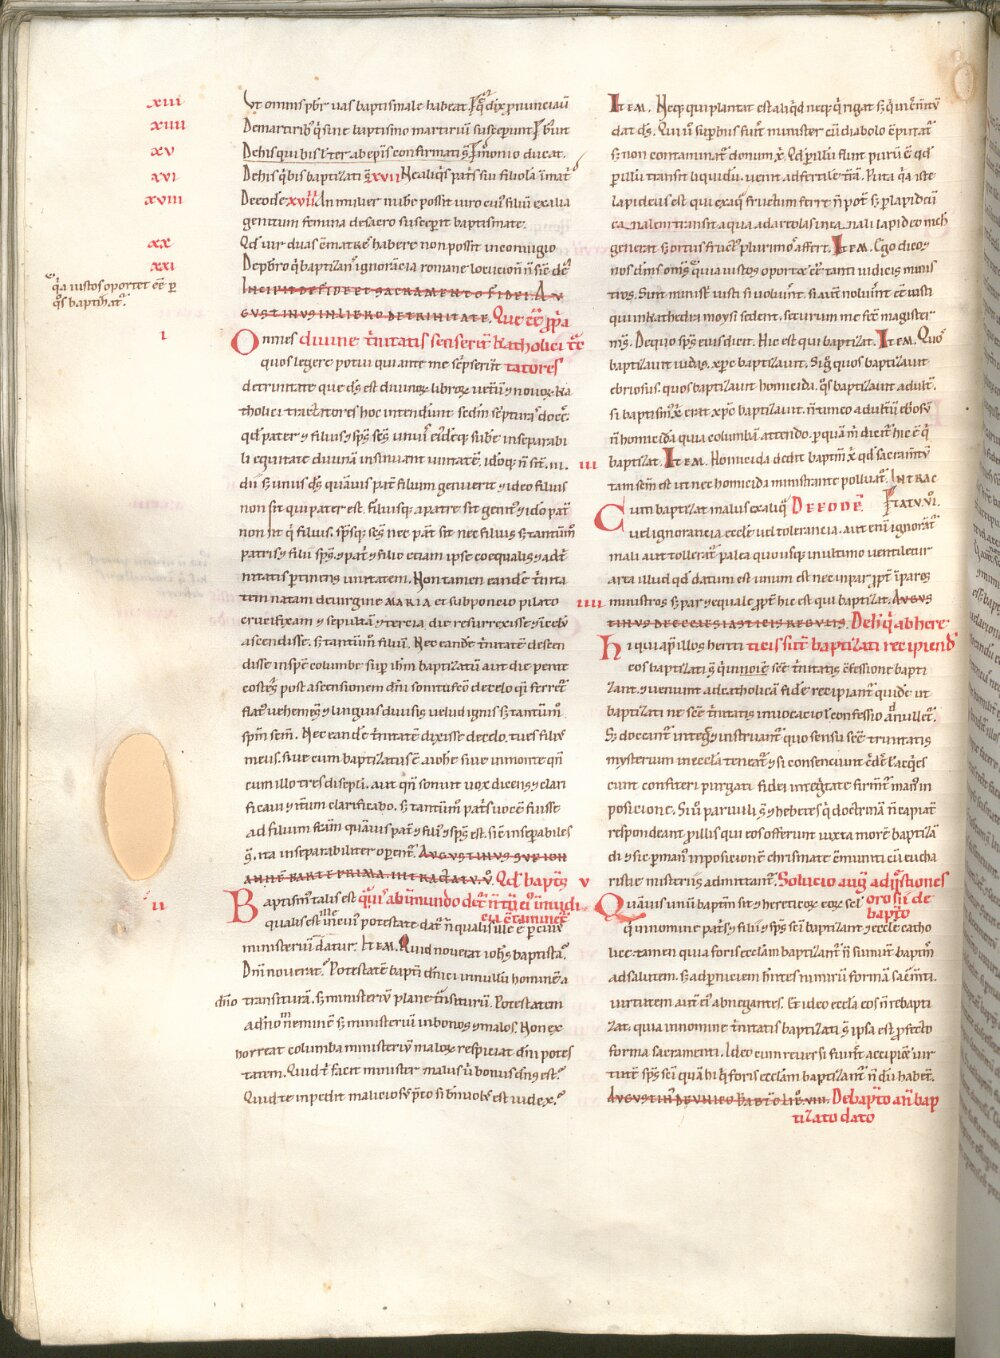 xiii Vt omnis pbr uas baptismale habeat
xiiii De martirib; q sine baptismo martirium susceperunt
xv De his qui bis t ter ab epis confirmati s
xvi De his q bis baptizati s xvii Ne aliqs
xviii De eode xviiii An mulier nube possit uiro cui filiu ex alia
gentium femina de sacro susceperit baptismate.
xx Qd uir duas cmatres habere non possit in coniugio
xxi De pbro q baptizan ignorancia romane locucion
qa iustos oportet ee p
qs baptizat.
INCIPIT DE FIDE ET SACRAMENTO FIDEI. AV
GVSTINVS IN LIBRO DE TRINITATE. Que
i Omnes diuine tnitatis senserit katholici
quos legere potui qui ante me scpserit tatores
de trinitate que ds est diuinoz libroz uetru 7 nouoz ka
tholici tractatores hoc intendunt scdm scpturas docere
qd pater 7 filius 7 sps scs unius eiusdeq; sube inseparabi
li equitate diuina insinuant unitate. ideoq; n st. iii.
dii s; unus ds quauis pat filium genuerit 7 ideo filius
non sit qui pater est. filiusq; a patre sit genit 7 ido pat
non sit q filius. spsq; scs nec pat sit nec filius s; tantum
patris 7 filii sps 7 pat 7 filio etiam ipse coequalis 7 ad t
nitatis ptinens unitatem. Non tamen eande tnita
tem natam de uirgine MARIA et sub poncio pilato
crucifixam 7 sepulta 7 tercia die resurrexisse 7 i celu
ascendisse. s; tantum filiu. Nec eande tnitate descen
disse in spe columbe sup ihm baptizatu aut die pente
costes post ascensionem dni sonitu fco de celo q ferret
flat uehemes 7 linguis diuisis uelud ignis s; tantum
spm scm. Nec eande tnitate dixisse de celo. tu es fili
meus. siue cum baptizatus e a iohe siue in monte qn
cum illo tres discipli. aut qn sonuit uox dicens 7 clari
ficaui 7 itum clarificabo. s; tantum patis uoce fuisse
ad filium fcam quauis pat 7 fili 7 sps est. sic insepabiles
s. ita inseparabiliter opent. AVGVSTINVS SVP ION
ANNE PARTE PRIMA IN TRACTATV. V. Qd bapt
ii Baptism talis est
qualis est ille in cuius potestate dat n qualis ille e p cuius
ministeriu datur. ITEM. Quid nouerat iohs baptista.
Dnm nouerat. Potestate baptm dnici in nullu homine a
dno transitura. s; ministeriu plane tnsiturii. Potestatem
a dno in nemine s; ministeriu in bonos 7 malos. Non ex
horreat columba ministeriu maloz respiciat dni potes
tatem. Quid t facit minister malus u bonus dns est.
Quid te impedit malicios
ITEM. Neq; qui plantat est aliqd neq; q rigat s; qui incmtu
dat ds. Qui u supbus fuit minister cu diabolo
s; non contaminat donum x. Qd p illu fluit puru e qd
p illu transit liquidu. uenit ad fertile tra. Puta qa iste
lapideus est qui ex aq fructum ferre n pot s; p lapideu
canalem transit aqua ad areolas in canali lapideo nich
generat s; ortus fruct plurimos affert. ITEM. Ego dico 7
nos dnm oms quia iustos oportet ee tanti iudicis minis
tros. Sint ministi iusti si uolunt. si aut nolunt ee iusti
qui in kathedra moysi sedent. securum me fecit magister
ms. De quo sps eius dicit. Hic est qui baptizat. ITEM. Quos
baptizauit iudas. xpc baptizauit. Sic g quos baptizauit
ebriosus. quos baptizauit homicida. qs baptizauit adulter.
si baptism x erat xpc baptizauit. n timeo adulteru ebriosu
n homicida quia columba attendo. p qua m dicit hic e q
iii baptizat. ITEM. Homicida dedit baptm x qd sacramtu
tam scm est ut nec homicida ministrante polluat. IN TRAC
Cum baptizat malus ex aliq DE EODE TATV. VI.
uel ignorancia eccle uel tolerancia. aut eni ignorat
mali aut tollerat palea quousq; in ultimo uentiletur
area illud qd datum est unum est nec inpar ppt ipares
iiii ministros s; par 7 equale ppt hic est qui baptizat. AVGVS
TINVS DE ECCLESIASTICIS REGVLIS. De his q ab here
Hi qui ap illos hereti ticis sunt baptizati recipiend
cos baptizati s q in noie sce tnitatis cfessione bapti
zant. 7 ueniunt ad catholica fide recipiant quide ut
baptizati ne sce tnitatis inuocacio t confessio adnullet.
S; doceant integre 7 instruant quo sensu sce trinitatis
mysterum in eccla teneat 7 si consenciunt
cunt confiteri purgati fidei integtate firment manu in
posicione. Siu paruuli s 7 hebetes q doctrina n capiat
respondeant p illis qui eos offerunt iuxta more baptiza
di 7 sic p manus inposicione 7 chrismate cmuniti eu eucha
ristie misteriis admittant. Solucio aug ad qstiones
v Quauis unu baptm sit 7 hereticoz eoz scl orosii de
q in nomine patis 7 filii 7 sps sci baptizant 7 eccle catho bapto
lice. tamen qui a foris ecclam baptizant n sumut baptm
ad salutem. s; ad pniciem hntes nimirii forma sacmti.
uirtutem aut ei abnegantes. Et ideo eccla eos n rebapti
zat. quia in nomine tnitatis baptizati s 7 ipsa est pfecto
forma sacramenti. Ideo cum reuersi fuint accipiut uir
tute sps sci qua hi q foris ecclam baptizant n du habent.
AVGVSTIN DE VNICO BAPTO LIB. VIII. De bapto an bap
tizato dato